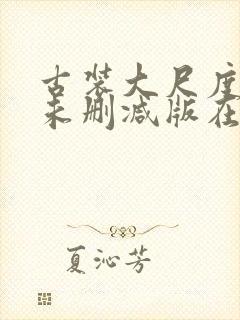 古装大尺度
未删减版在
夏沁芳